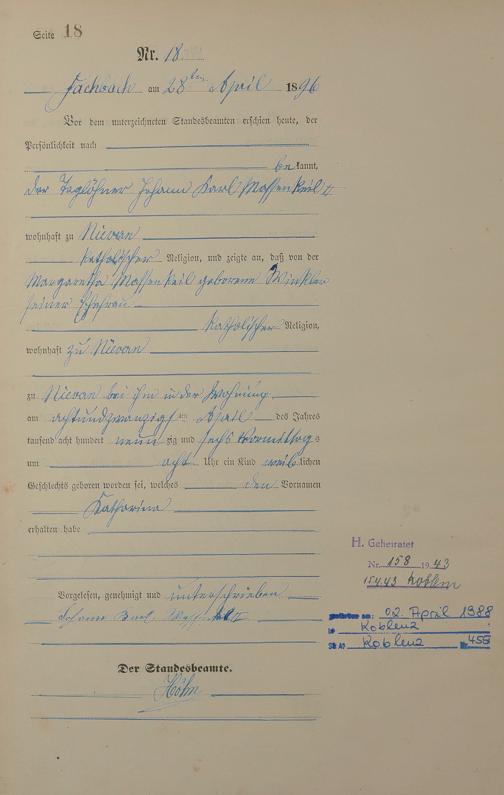 Seite 18
Nr. 18
Fachbach am 28ten April 1896
Vor dem unterzeichneten Standesbeamten erschien heute, der
Persönlichkeit nach
bekannt,
der Taglöhner Johann Karl Massenkeil II
wohnhaft zu Nievern
katholischer Religion, und zeigte an, daß von der
Margaretha Massenkeil geborene Winkler
seiner Ehefrau
katholischer Religion,
wohnhaft zu Nievern
zu Nievern bei ihm in der Wohnung
am achtundzwanzigsten April des Jahres
tausend acht hundert neunzig und sechs Vormittags
um acht Uhr ein Kind weiblichen
Geschlechts geboren worden sei, welches den Vornamen
Katharina
erhalten habe
Vorgelesen, genehmigt und unterschrieben
Johann Karl Massenkeil II
Der Standesbeamte.
Höhn
H. Geheiratet
Nr. 158 1943
15.4.43 Koblenz
gestorben am: 02. April 1988
in Koblenz
StA: Koblenz Nr. 455